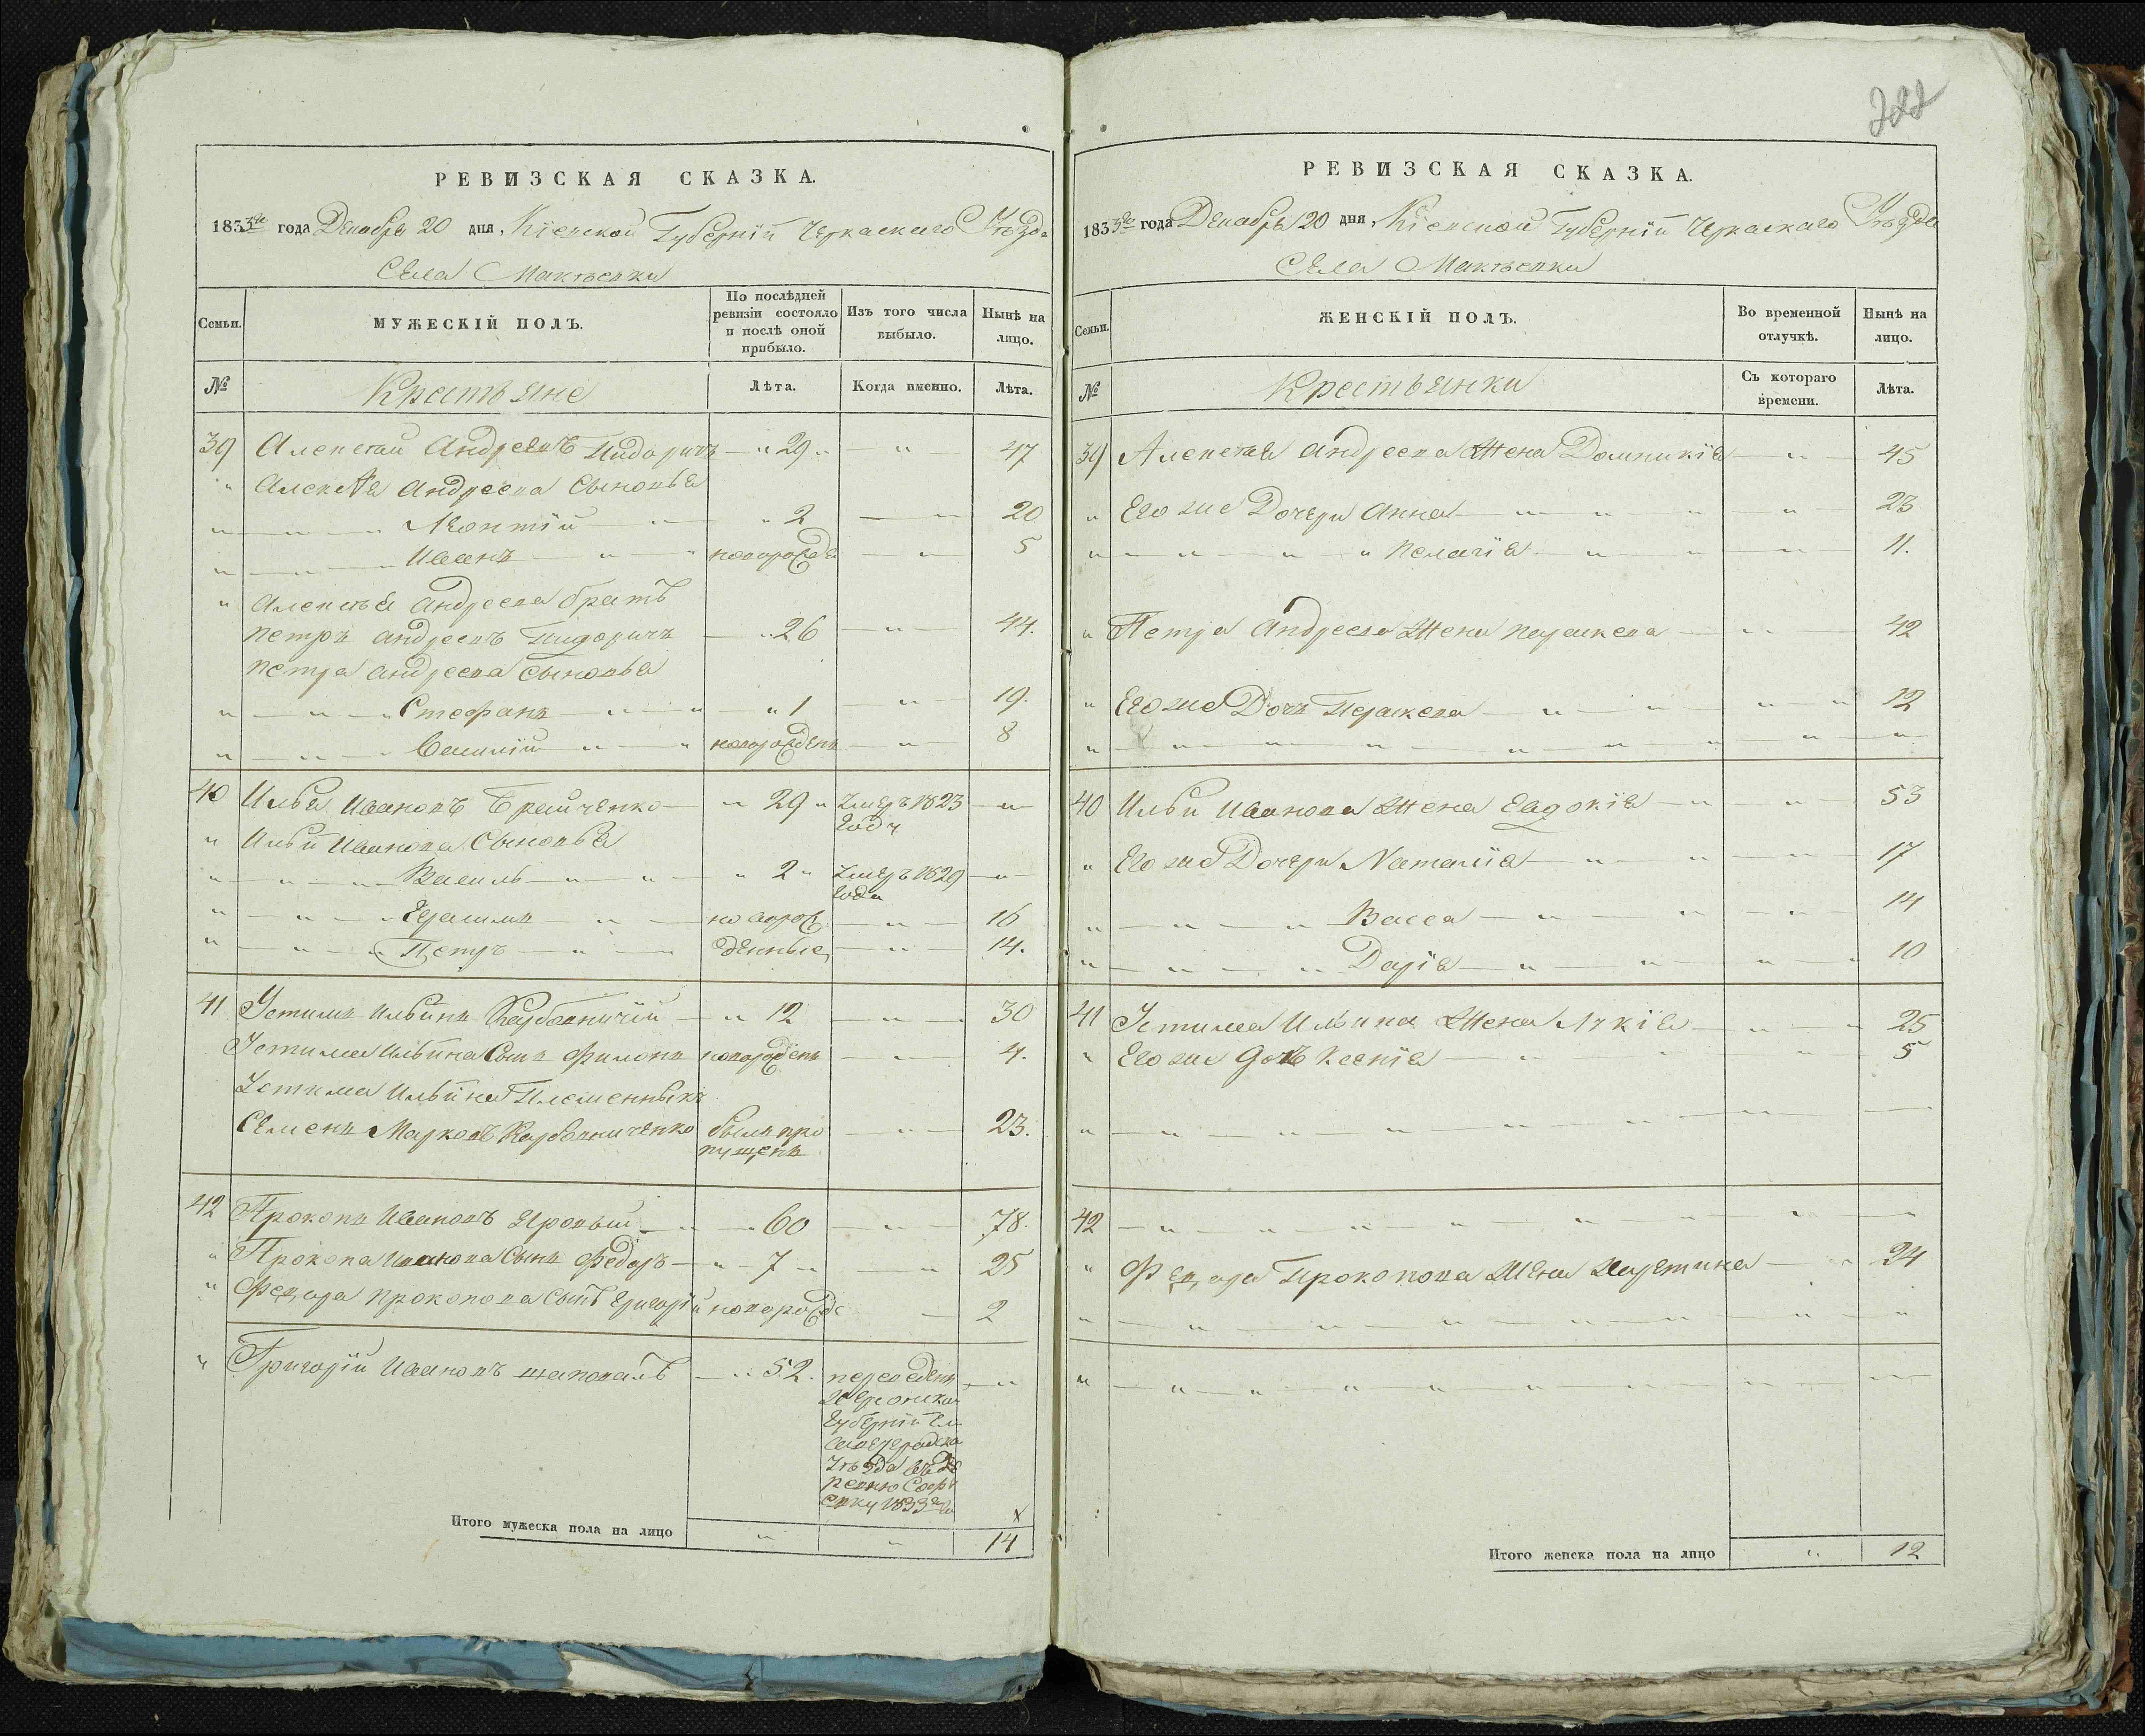 222
РЕВИЗСКАЯ СКАЗКА.
1833го года Декабря 20 дня, Кіевской Губерніи Черкаскаго Уѣзда
Села Макѣевки
Семьи.
МУЖЕСКІЙ ПОЛЪ.
По послѣдней ревизіи состояло и послѣ оной прибыло.
Изъ того числа выбыло.
Нынѣ на лицо.
№
Крестьяне
Лѣта.
Когда именно.
Лѣта.
39 Алексей Андреевъ — „ 29 „ — „ — 47
„ Алексея Андреева Сыновья
„ — „ — „ Леонтій — „ — „ 2 — „ — 20
„ — „ — „ Иванъ — „ — „ новорожде — „ — 5
„ Алексея Андреева братъ
Петръ Андреевъ — „ 26 — „ — 44.
Петра Андреева Сыновья
„ — „ — „ Стефанъ — „ — „ — „ 1 — „ — 19.
„ — „ — „ Василій — „ — „ новорожденъ — „ — 8
40 Илья Ивановъ — „ 29 „ Умеръ 1823 — „ —
Году
„ Ильи Иванова Сыновья
„ — „ — „ Василь — „ — „ — „ 2 „ Умеръ 1829 — „ —
Года
„ — „ — „ Герасимъ — „ — новорож — „ — 16
„ — „ — „ Петръ — „ — „ денные — „ — 14.
41 Устимъ Ильинъ Карбовничій — „ 12 — „ — 30
Устима Ильина Сынъ Филонъ новорожденъ — „ — 4.
Устима Ильина Племенникъ
Семенъ Марковъ Карбовниченко былъ про — „ — 23.
пущенъ
42 Прокопъ Ивановъ Яровый — „ — „ 60 — „ — 78.
„ Прокопа Иванова Сынъ Федоръ — „ — 7 „ — „ — 25
„ Федора Прокопова Сынъ Григорій новорожде — 2
„ Григорій Ивановъ Шаповалъ — „ 52. переведенъ — „
Херсонской
Губерніи Ели
саветградска
Уѣзда въ Де
ревню Софі
евку 1833го
х
Итого мужеска пола на лицо „ „ 14
РЕВИЗСКАЯ СКАЗКА.
1833го года Декабря 20 дня, Кіевской Губерніи Черкаскаго Уѣзда
Села Макѣевки
Семьи.
ЖЕНСКІЙ ПОЛЪ.
Во временной отлучкѣ.
Нынѣ на лицо.
№
Крестьянки
Съ котораго времени.
Лѣта.
39 Алексея Андреева Жена Домникія — „ — 45
„ Его же Дочери Анна — „ — „ — „ — „ — 23
„ — „ — „ — „ Пелагія — „ — „ — „ — 11.
„ Петра Андреева Жена Параскева — „ — 42
„ Его же Дочь Параскева — „ — „ — „ — „ 12
„ — „ — „ — „ — „ — „ — „ — „
40 Ильи Иванова Жена Евдокія — „ — „ — 53
„ Его же Дочери Наталія — „ — „ — „ — 17
„ — „ — „ — „ Васса — „ — „ — „ — 14
„ — „ — „ — „ Дарія — „ — „ — „ — „ 10
41 Устима Ильина Жена Лукія — „ — „ 25
„ Его же дочь Ксенія — „ — „ — „ — 5
„ — „ — „ — „ — „ — „ — „ —
42 — „ — „ — „ — „ — „ — „ —
„ Федора Прокопова Жена Харетина — „ 24
„ — „ — „ — „ — „ — „ — „ — „
„ — „ — „ — „ — „ — „ — „ — „
Итого женска пола на лицо „ 12